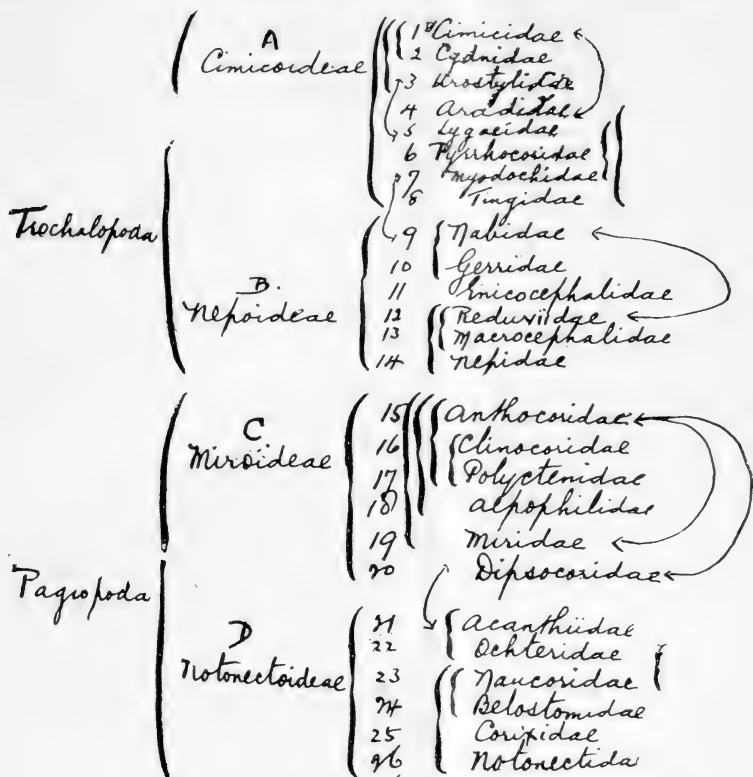 A
Cimicoideae
1 Cimicidae
2 Cydnidae
3 Urostylidae
4 Aradidae
5 Lygaeidae
6 Pyrrhocoridae
7 Myodochidae
8 Tingidae
Trochalopoda
B.
Nepoideae
9 Nabidae
10 Gerridae
11 Enicocephalidae
12 Reduviidae
13 Macrocephalidae
14 Nepidae
C
Miroideae
15 Anthocoridae
16 Clinocoridae
17 Polyctenidae
18 Aepophilidae
19 Miridae
20 Dipsocoridae
Pagiopoda
D
Notonectoideae
21 Acanthiidae
22 Ochteridae
23 Naucoridae
24 Belostomidae
25 Corixidae
26 Notonectida